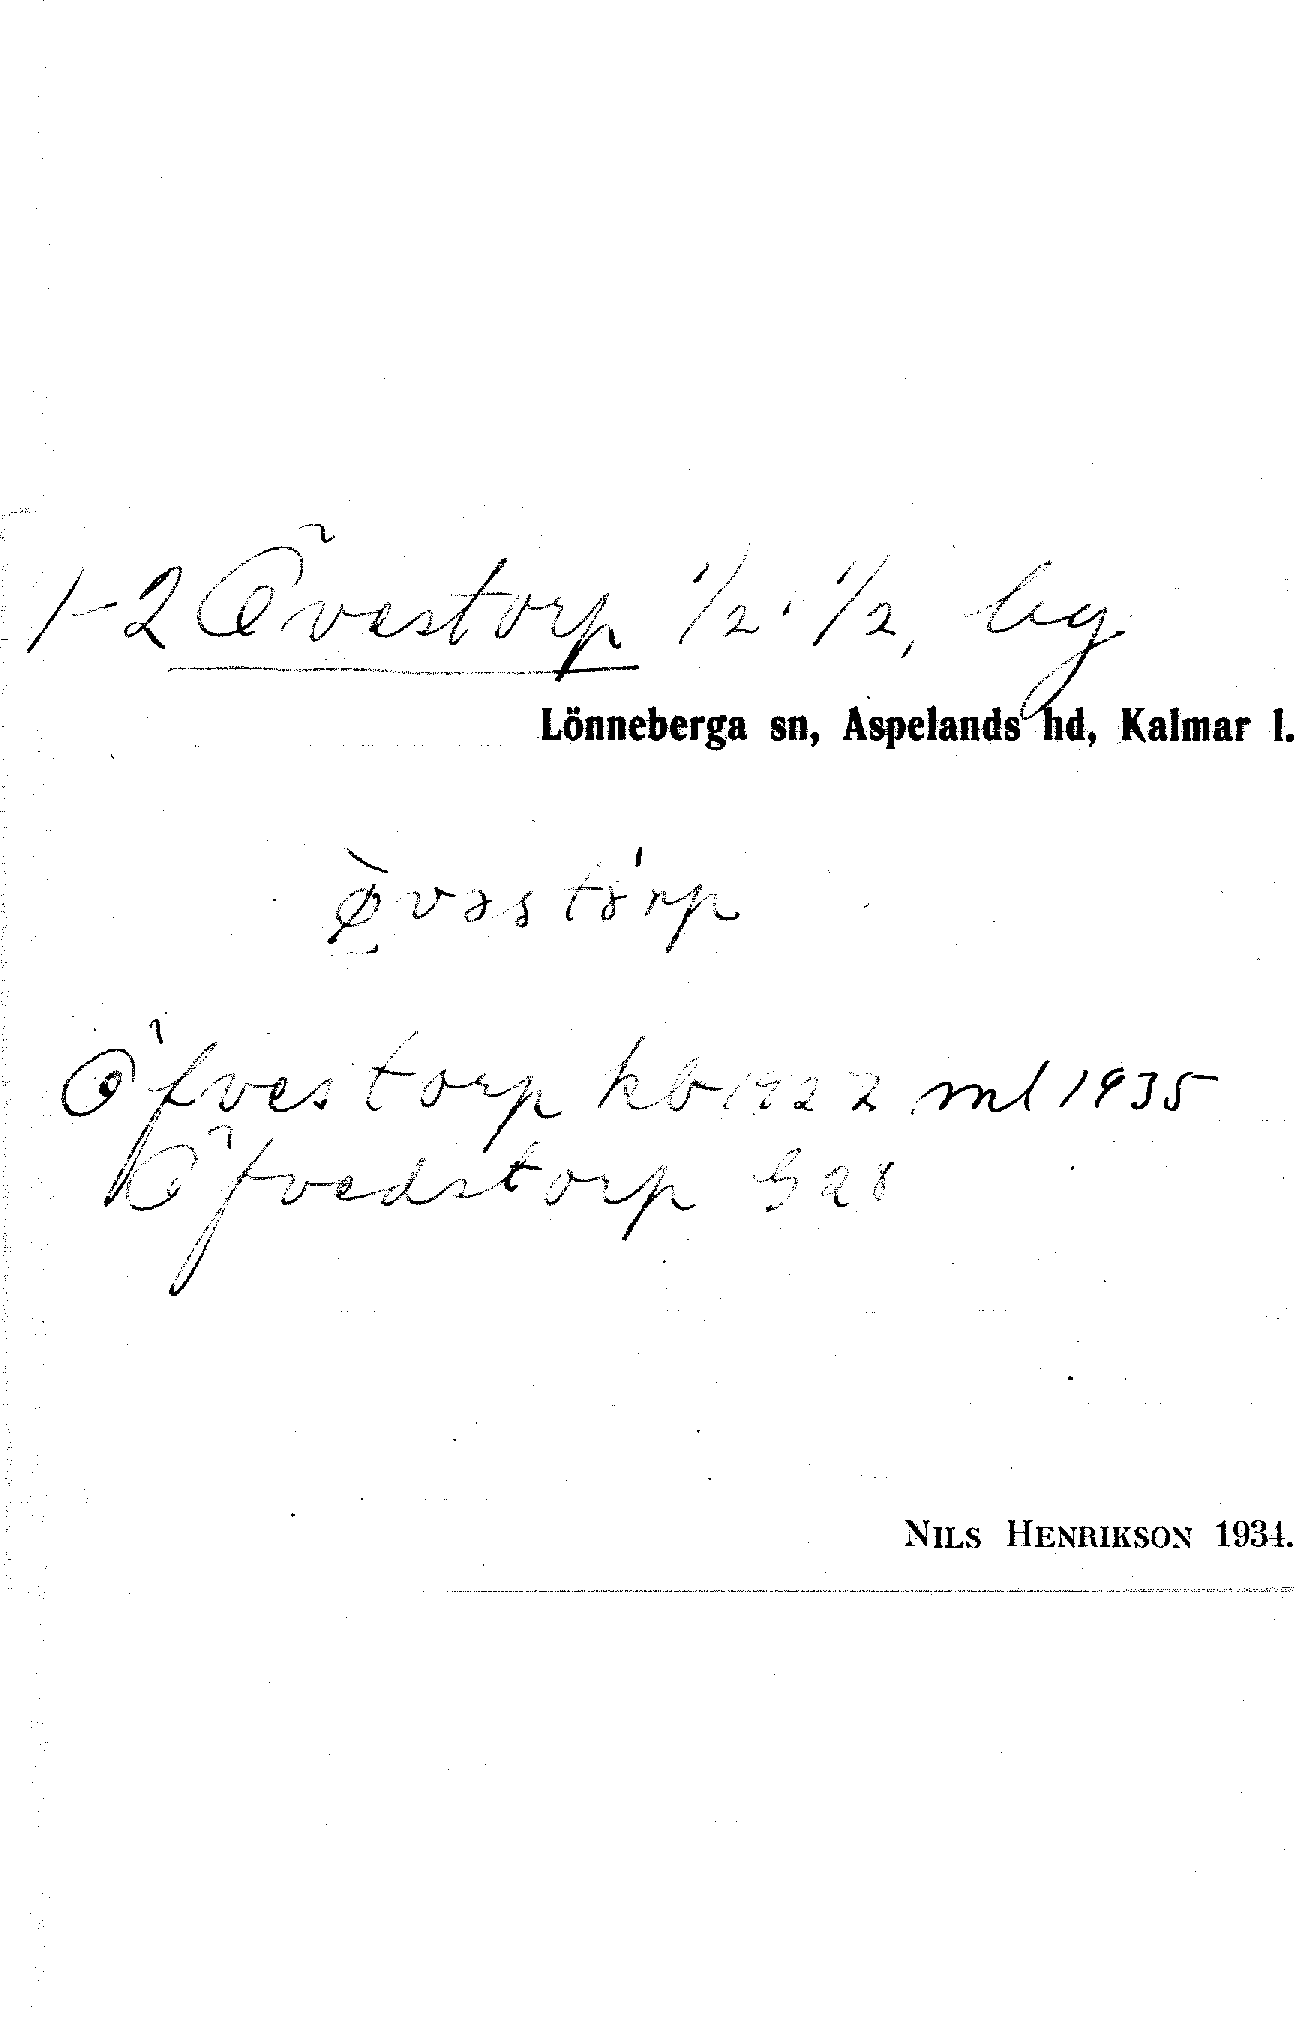 1-2 Övestorp 1/2, 1/2, by
Lönneberga sn, Aspelands hd, Kalmar l.
Öfvestorp kb 1922 ml 1935
Öfvedstorp G a 8
NILS HENRIKSON 1934.